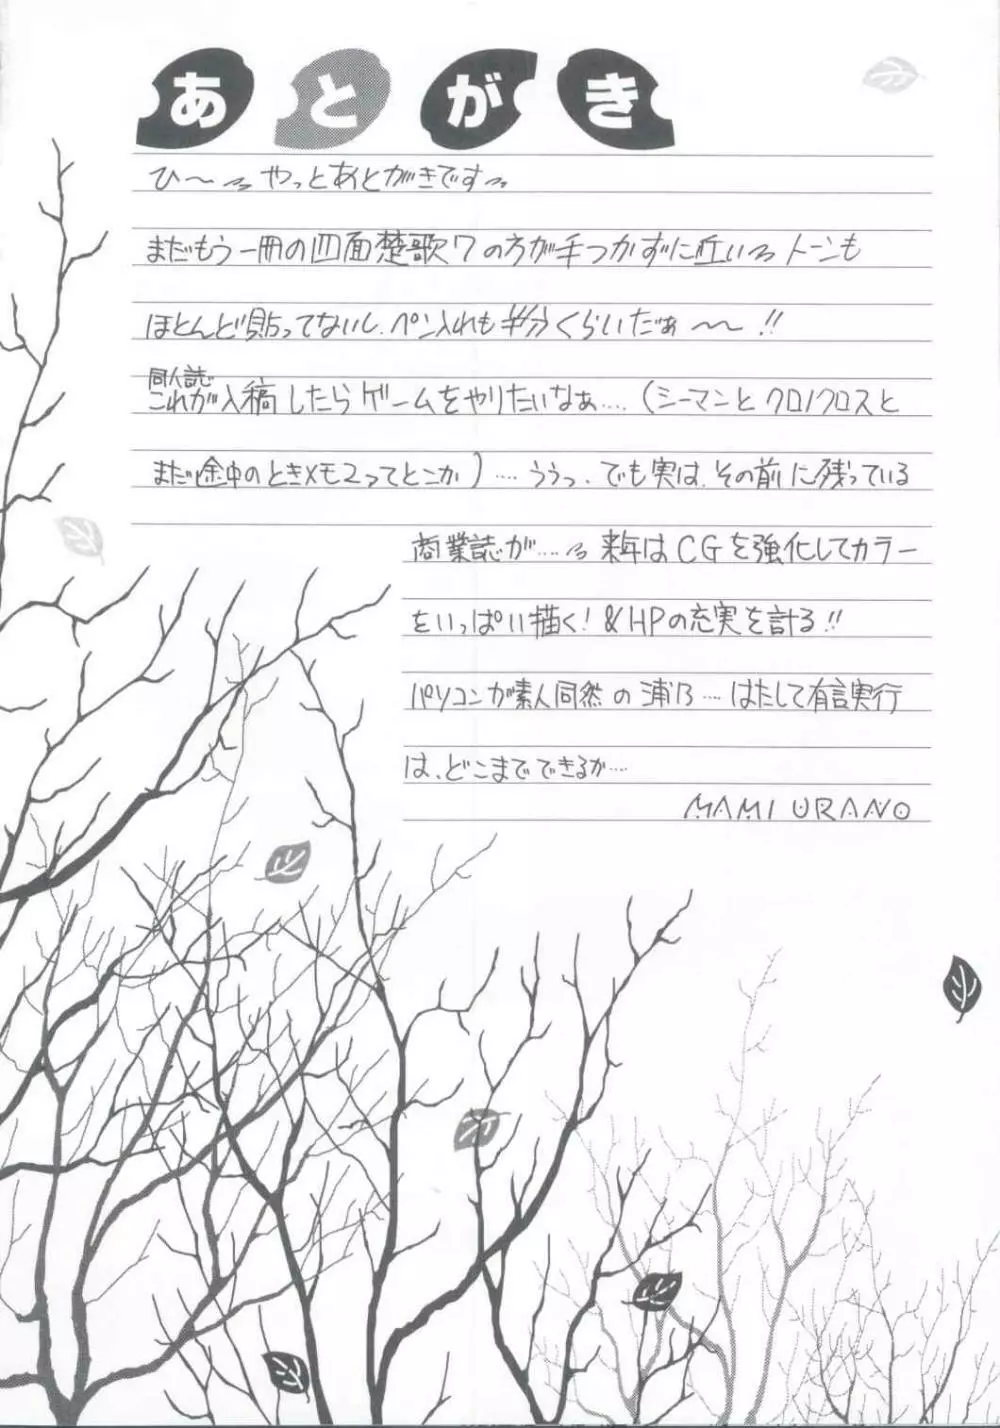 あとがき
ひ〜〜やっとあとがきです〜
まだもう一冊の四面楚歌7の方が手つかずに近い〜トーンも
ほとんど貼ってないし、ペン入れも半分くらいだぁ〜〜!!
同人誌
これが入稿したらゲームをやりたいなぁ…。(シーマンとクロノクロスと
まだ途中のときメモ2ってとこか)…。ううっ、でも実は、その前に残っている
商業誌が…。〜来年はCGを強化してカラー
をいっぱい描く!&HPの充実を計る!!
パソコンが素人同然の浦乃…。はたして有言実行
は、どこまでできるか…。
MAMI URANO